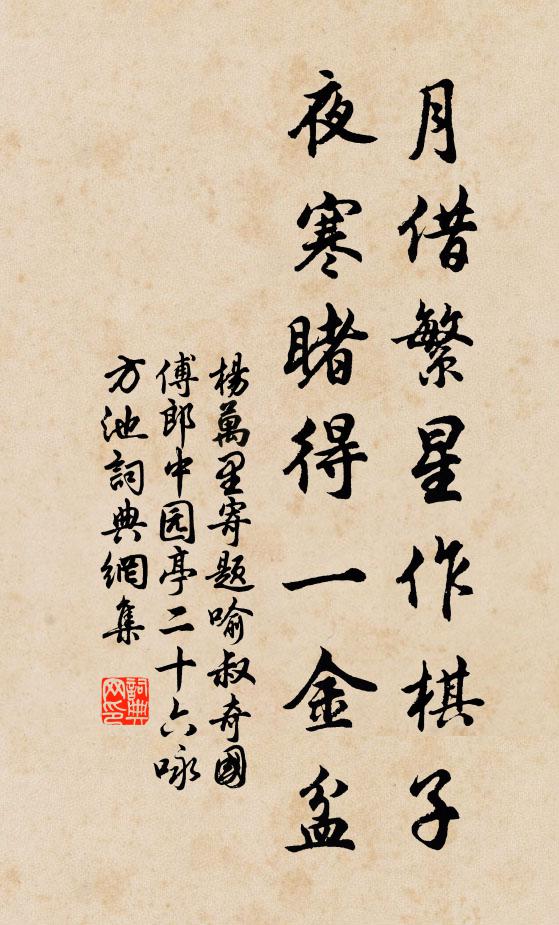 月借繁星作棋子
夜寒賭得一金盆
楊萬里寄題喻叔奇國
傅郎中园亭二十六咏
方池詞典網集
詞典
网印